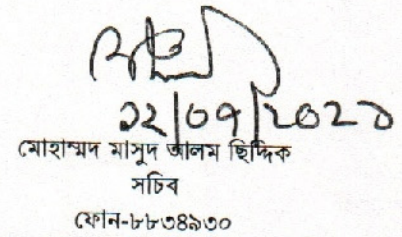 ১২/০৭/২০২১
মোহাম্মদ মাসুদ আলম ছিদ্দিক
সচিব
ফোন-৮৮৩৪৯৩০